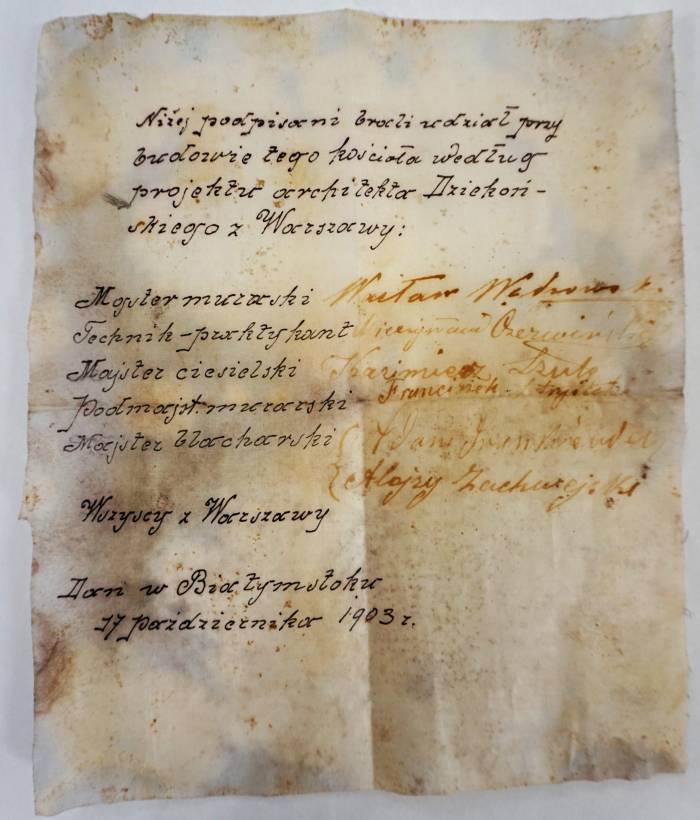 Niżej podpisani brali udział przy
budowie tego kościoła według
projektu architekta Dziekoń-
skiego z Warszawy:
Majster murarski Wacław
Technik-praktykant Czerwiński
Majster ciesielski Kazimierz Szulc
Podmajst. murarski Franciszek
Majster blacharski { Adam
{ Alojzy
Wszyscy z Warszawy
Dan w Białymstoku
17 października 1903 r.